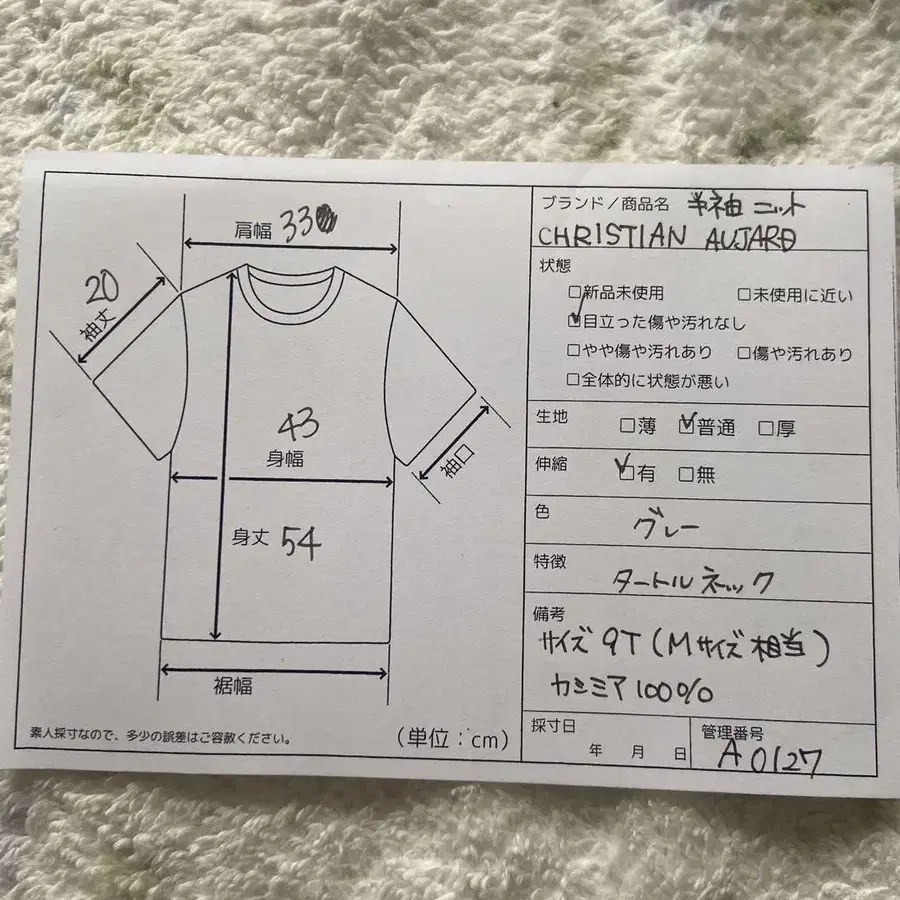 肩幅 33
20
袖丈
43
身幅
袖口
身丈 54
裾幅
素人採寸なので、多少の誤差はご容赦ください。
(単位：cm)
ブランド／商品名 半袖 ニット
CHRISTIAN AUJARD
状態
□新品未使用 □未使用に近い
☑目立った傷や汚れなし
□やや傷や汚れあり □傷や汚れあり
□全体的に状態が悪い
生地 □薄 ☑普通 □厚
伸縮 ☑有 □無
色
グレー
特徴
タートルネック
備考
サイズ 9T (Mサイズ相当)
カシミア100%
採寸日
年 月 日
管理番号
A0127